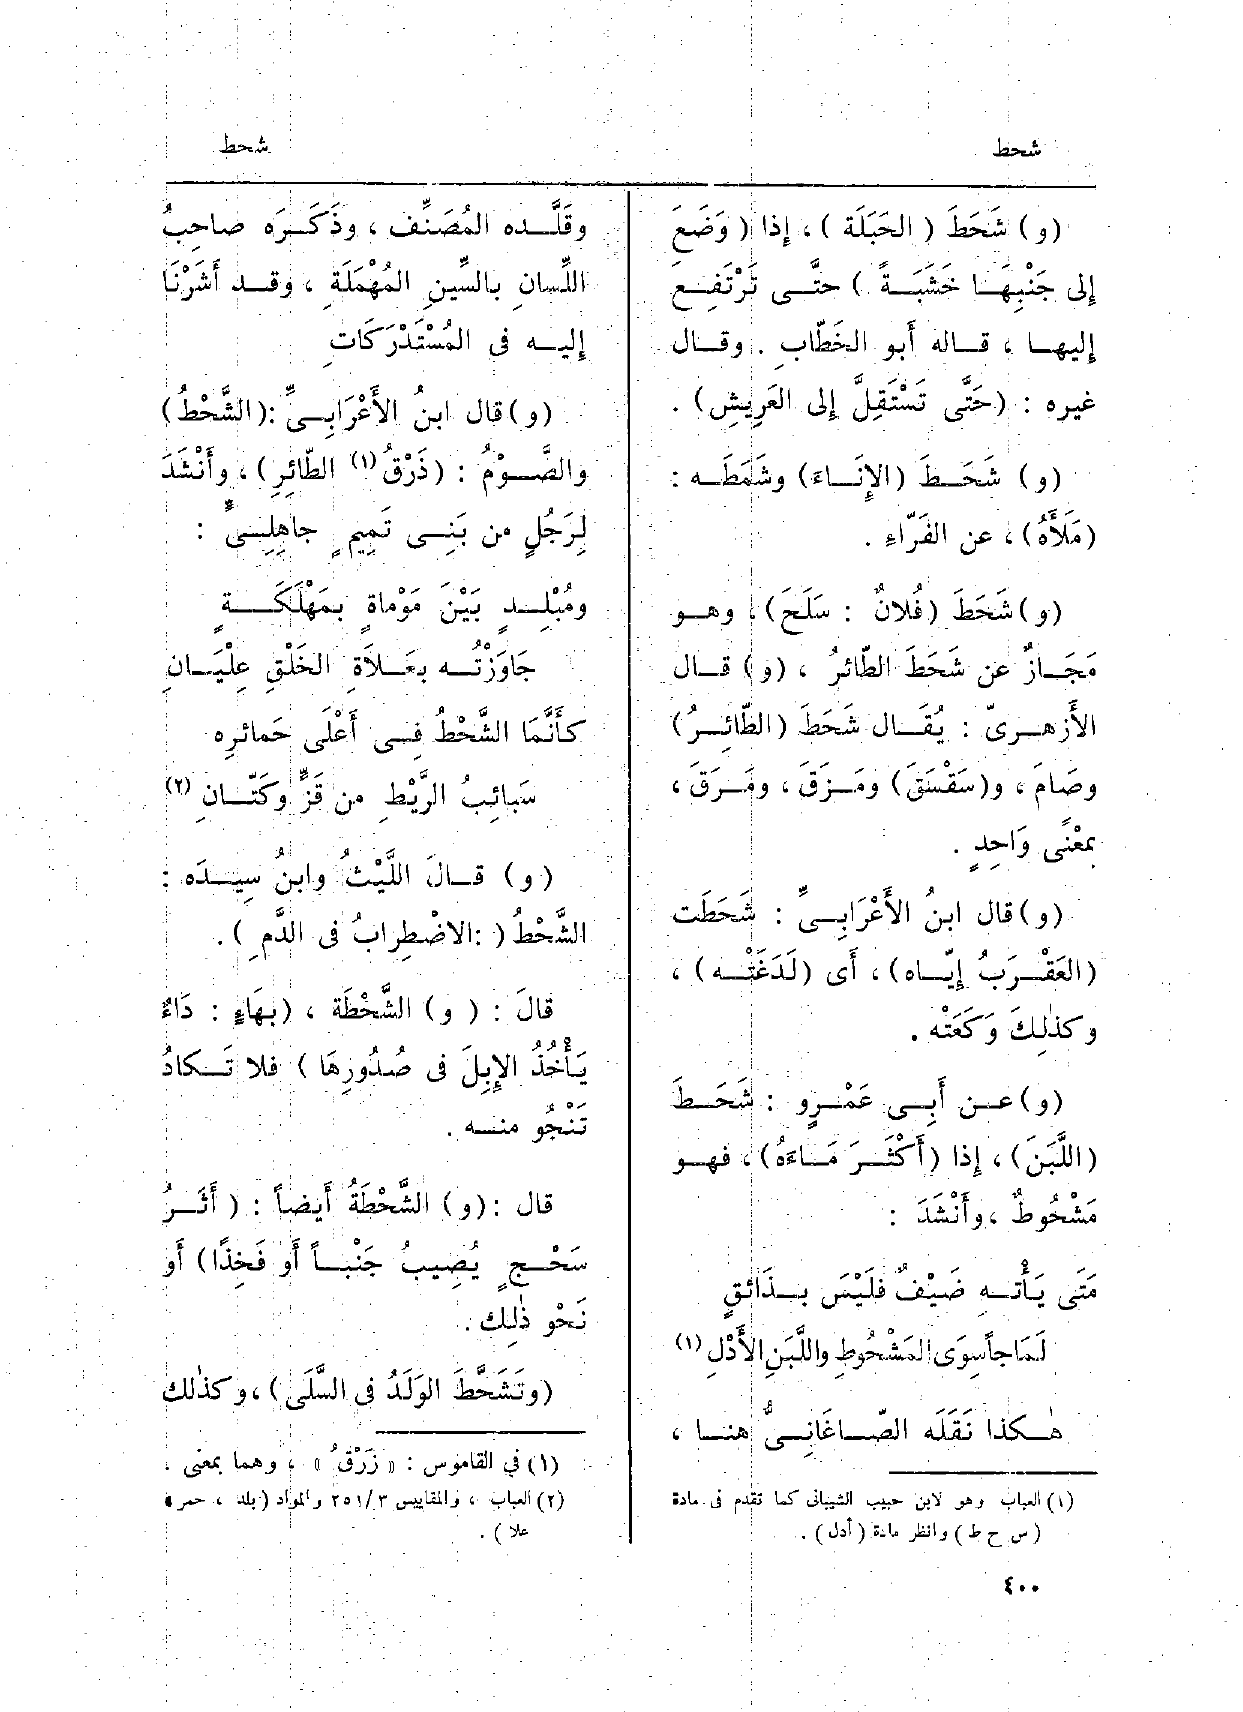 شحط
شحط
(و) شَحَطَ ( الحَبَلَة ) ، إذا ( وَضَعَ
إلى جَنْبِهَا خَشَبَةً ) حتَّى تَرْتَفِعَ
إليها ، قاله أبو الخَطّابِ . وقال
غيره : (حَتَّى تَسْتَقِلَّ إلى العَرِيشِ) .
(و) شَحَطَ (الإِنَاءَ) وشَمَّطَه :
(مَلَأَهُ) ، عن الفَرّاءِ .
(و) شَحَطَ (فُلانٌ : سَلَحَ) ، وهو
مَجَازٌ عن شَحَطَ الطّائرُ ، (و) قال
الأَزهرىّ : يُقَال شَحَطَ (الطّائِرُ)
وصَامَ ، و(سَقْسَقَ) ومَزَقَ ، ومَرَقَ ،
بمعْنًى وَاحِدٍ .
(و) قال ابنُ الأَعْرَابِىِّ : شَحَطَت
(العَقْرَبُ إيّاه) ، أى (لَدَغَتْه) ،
وكذٰلِكَ وَكَعَتْه .
(و) عن أَبِى عَمْرٍو : شَحَطَ
(اللَّبَنَ) ، إذا (أَكْثَرَ مَاءَهُ) ، فهو
مَشْحُوطٌ ، وأَنْشَدَ :
مَتَى يَأْتهِ ضَيْفٌ فلَيْسَ بذَائقٍ
لَمَاجاً سِوَى المَشْحُوطِ واللَّبَنِ الأَدْلِ (١)
هٰكذا نَقَلَه الصّاغَانِىُّ هنا ،
(١) العباب وهو لابن حبيب الشيبانى كما تقدم فى مادة
( س ح ط ) وانظر مادة ( أدل ) .
وقَلَّده المُصَنِّف ، وذَكَرَه صاحِبُ
اللِّسانِ بالسِّينِ المُهْمَلَةِ ، وقد أَشَرْنَا
إليه فى المُسْتَدْرَكَاتِ
(و) قال ابنُ الأَعْرَابِىِّ : (الشَّحْطُ)
والصَّوْمُ : (ذَرْقُ (١) الطّائِرِ) ، وأَنْشَدَ
لِرَجُلٍ من بَنِى تَمِيمٍ جاهِلِىٍّ :
ومُبْلِدٍ بَيْنَ مَوْماةٍ بمَهْلَكَةٍ
جَاوَزْتُه بعَلَاةِ الخَلْقِ عِلْيَانِ
كأَنَّمَا الشَّحْطُ فِى أَعْلَى حَمائرِه
سَبائِبُ الرَّيْطِ من قَزٍّ وكَتّانِ (٢)
(و) قالَ اللَّيْثُ وابنُ سِيدَه :
الشَّحْطُ ( : الاضْطِرابُ فى الدَّمِ ) .
قالَ : ( و) الشَّحْطَة ، (بهَاءٍ : دَاءٌ
يَأْخُذُ الإِبِلَ فى صُدُورِهَا ) فلا تَكادُ
تَنْجُو منه .
قال : (و) الشَّحْطَةُ أَيضاً : ( أَثَرُ
سَحْجٍ يُصِيبُ جَنْباً أو فَخِذًا) أَو
نَحْو ذٰلِك .
(وتَشَحَّطَ الوَلَدُ فى السَّلَى ) ، وكذٰلك
(١) في القاموس : « زَرْقُ » ، وهما بمعنى .
(٢) العباب ، والمقاييس ٢٥١/٣ والمواد ( بلد ، حمر ،
علا ) .
٤٠٠